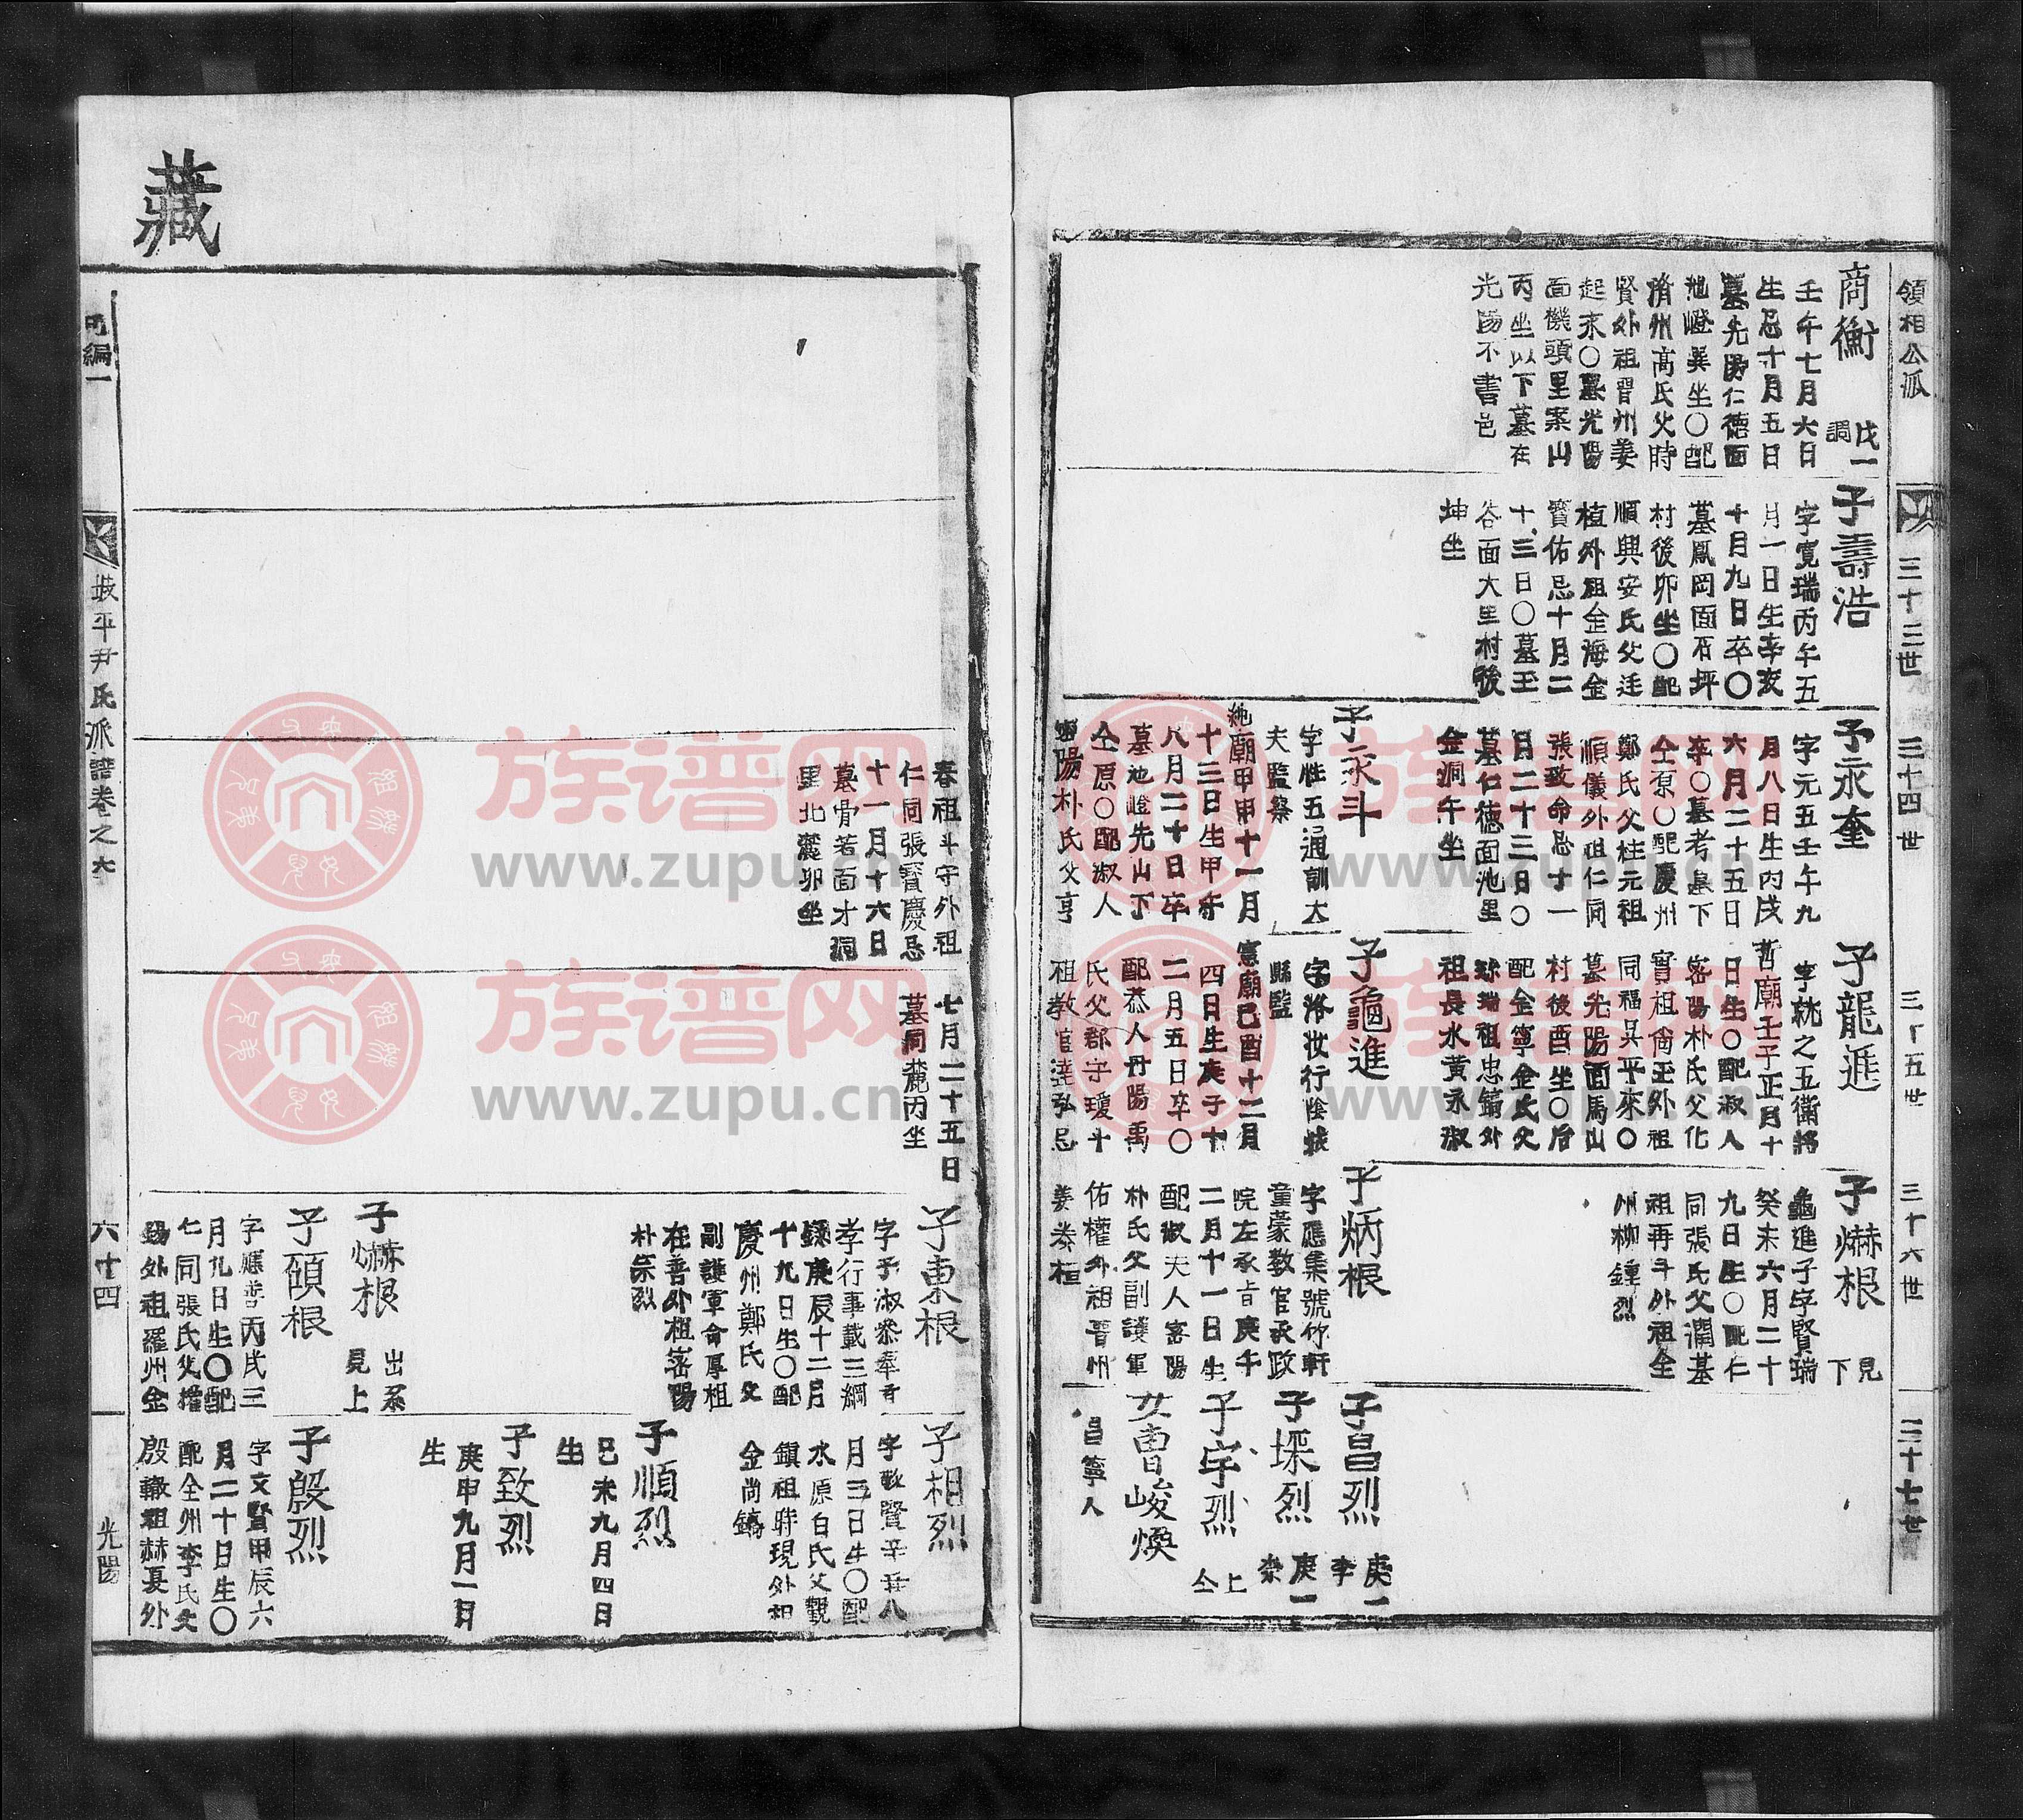 領相公派
三十三世
三十四世
三十五世
三十六世
三十七世
商衡
戊一
調
壬午七月六日
生忌十月五日
墓光陽仁德面
池嶝巽坐〇配
濟州高氏父時
賢外祖晉州姜
起來〇墓光陽
面機頭里案山
丙坐以下墓在
光陽不書邑
子壽浩
字寬瑞丙午五
月一日生辛亥
十月九日卒〇
墓鳳岡面石坪
村後卯坐〇配
順興安氏父廷
植外祖金海金
寶佑忌十月二
十三日〇墓玉
谷面大里村後
坤坐
子永奎
字元五壬午九
月八日生丙戌
六月二十五日
卒〇墓考墓下
仝原〇配慶州
鄭氏父柱元祖
順儀外祖仁同
張致命忌十一
月二十三日〇
墓仁德面池里
金洞午坐
子永斗
字性五通訓大
夫監察
純廟甲申十一月
十三日生甲午
八月二十日卒
墓池嶝先山下
仝原〇配淑人
密陽朴氏父亨
子龍進
字現之五衛將
哲廟壬子正月十
日生〇配淑人
密陽朴氏父化
實祖尙玉外祖
同福吳平來〇
墓光陽面馬山
村後酉坐〇后
配金寧金氏父
珍瑞祖忠鎬外
祖長水黃永淑
子龜進
字洛汝行陰城
縣監
憲廟己酉十二月
四日生庚子十
二月五日卒〇
配恭人丹陽禹
氏父郡守瓊十
祖敎官達弘忌
子爀根
見
下
龜進子字賢瑞
癸未六月二十
九日生〇配仁
同張氏父潤基
祖再斗外祖全
州柳鍾烈
子炳根
字應集號竹軒
童蒙敎官承政
院左承旨庚午
二月十一日生
配淑夫人密陽
朴氏父副護軍
佑權外祖晉州
姜泰桓
子昌烈
庚一
李
子堔烈
庚一
柰
子宇烈
上
仝
女曹峻煥
昌寧人
藏
可編一
坡平尹氏派譜卷之六
六十四
光陽
春祖斗守外祖
仁同張寶慶忌
十一月十六日
墓骨若面才洞
里北麓卯坐
七月二十五日
墓同麓丙坐
子東根
字予淑參奉有
孝行事載三綱
錄庚辰十二月
十九日生〇配
慶州鄭氏父
副護軍命厚祖
在善外祖密陽
朴宗烈
子爀根
出系
見上
子頎根
字應善丙戌三
月九日生〇配
仁同張氏父權
錫外祖羅州金
子相烈
字敬賢辛丑八
月三日生〇配
水原白氏父觀
鎭祖时現外祖
金尚鎬
子順烈
己未九月四日
生
子致烈
庚申九月一日
生
子殷烈
字文賢甲辰六
月二十日生〇
配全州李氏父
殷轍祖赫夏外
族谱网
www.zupu.cn
族谱网
www.zupu.cn
族谱网
www.zupu.cn
族谱网
www.zupu.cn